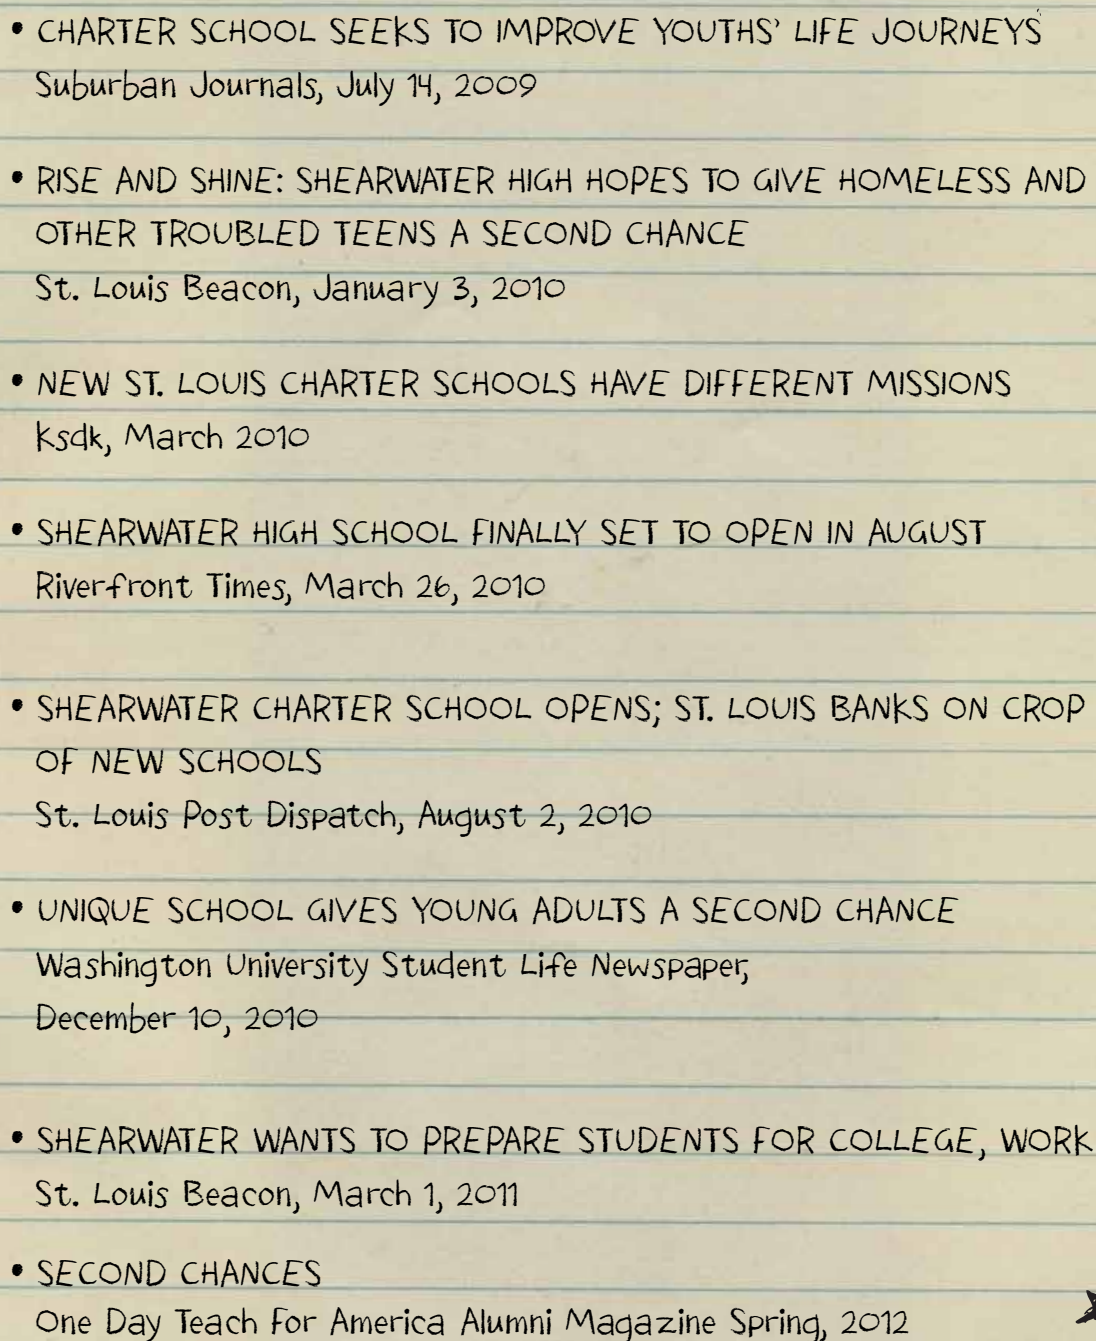 • CHARTER SCHOOL SEEKS TO IMPROVE YOUTHS' LIFE JOURNEYS
Suburban Journals, July 14, 2009
• RISE AND SHINE: SHEARWATER HIGH HOPES TO GIVE HOMELESS AND
OTHER TROUBLED TEENS A SECOND CHANCE
St. Louis Beacon, January 3, 2010
• NEW ST. LOUIS CHARTER SCHOOLS HAVE DIFFERENT MISSIONS
ksdk, March 2010
• SHEARWATER HIGH SCHOOL FINALLY SET TO OPEN IN AUGUST
Riverfront Times, March 26, 2010
• SHEARWATER CHARTER SCHOOL OPENS; ST. LOUIS BANKS ON CROP
OF NEW SCHOOLS
St. Louis Post Dispatch, August 2, 2010
• UNIQUE SCHOOL GIVES YOUNG ADULTS A SECOND CHANCE
Washington University Student Life Newspaper,
December 10, 2010
• SHEARWATER WANTS TO PREPARE STUDENTS FOR COLLEGE, WORK
St. Louis Beacon, March 1, 2011
• SECOND CHANCES
One Day Teach For America Alumni Magazine Spring, 2012